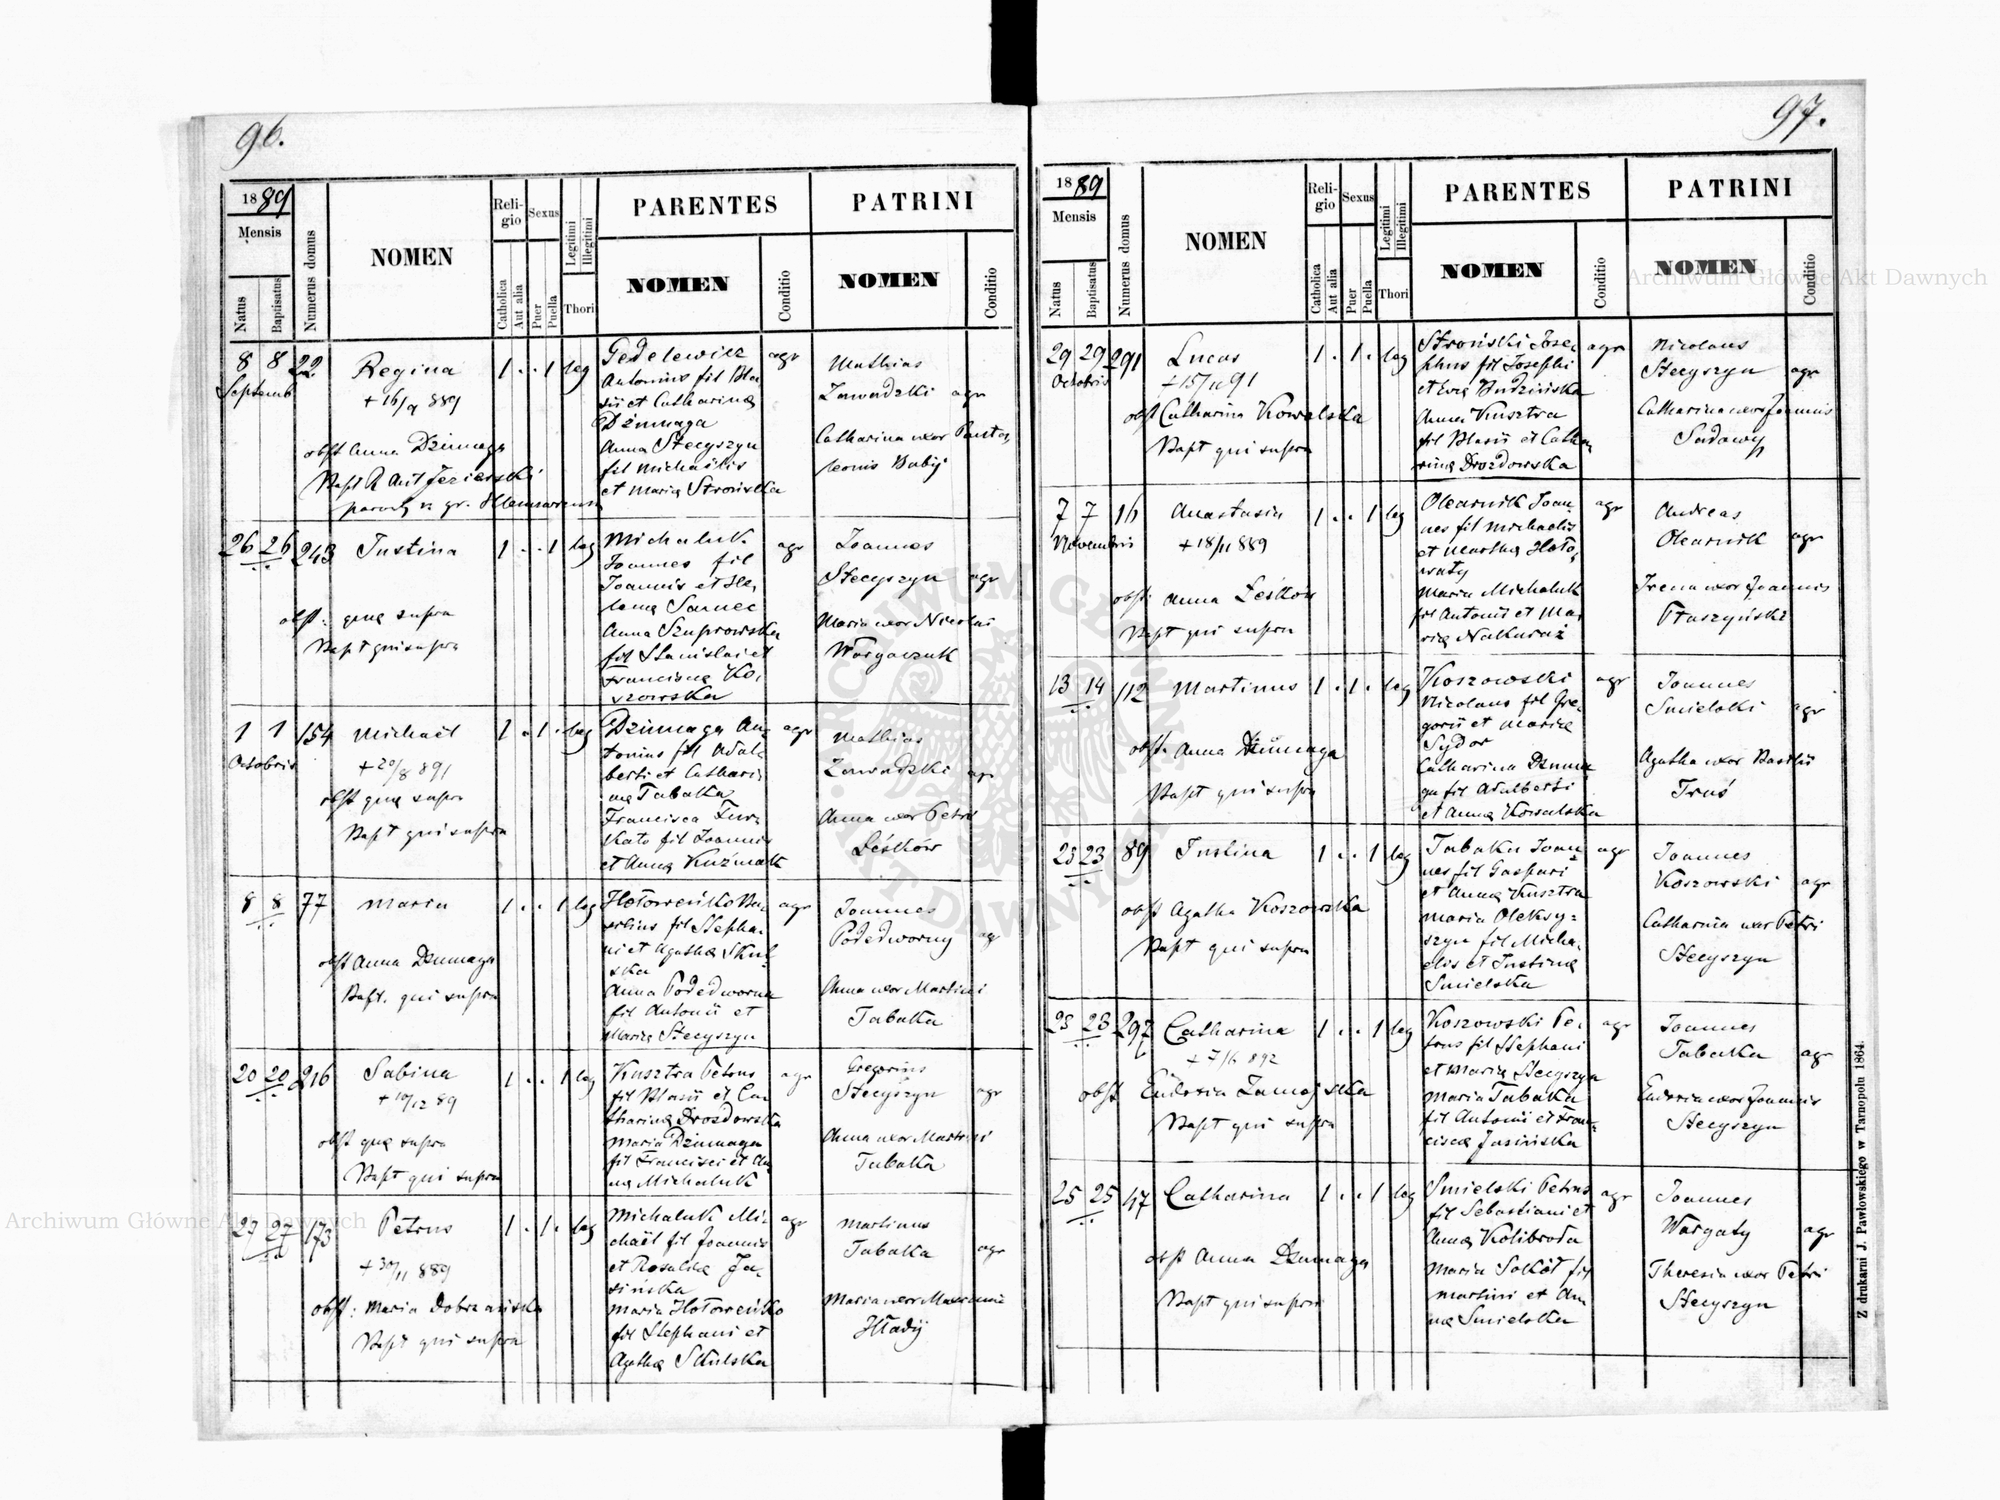 96.
1889
Mensis
Natus
Baptisatus
Numerus domus
NOMEN
Religio
Catholica
Aut alia
Sexus
Puer
Puella
Legitimi
Illegitimi
Thori
PARENTES
NOMEN
Conditio
PATRINI
NOMEN
Conditio
8 8 22
Septemb
Regina
+ 16/9 889
obst Anna Dziumaga
Bapt R Ant Jezierski
1 . . 1 leg
Gedelewicz
Antonius fil Bla
sii et Catharinæ
Dziumaga
Anna Stecyszyn
fil Michaëlis
et Mariæ Strońska
agr
Mathias
Zawadzki agr
Catharina uxor Panta,
leonis Babij
26 26 243
Justina
obst: quæ supra
Bapt qui supra
1 . . 1 leg
Michaluk
Joannes fil
Joannis et He,
lenæ Samec
Anna Szuprowska
fil Stanislai et
Franciscæ Ko,
szowska
agr
Joannes
Stecyszyn agr
Maria uxor Nicolai
Wargaczuk
1 1 154
Octobris
Michaël
+ 20/8 891
obst quæ supra
Bapt qui supra
1 . 1 . leg
Dziumaga An,
tonius fil Adal,
berti et Cathari,
næ Tabaka
Francisca Żur,
kato fil Joannis
et Annæ Kuźmak
agr
Mathias
Zawadzki agr
Anna uxor Petri
Leśków
8 8 77
Maria
obst Anna Dziumaga
Bapt. qui supra
1 . . 1 leg
Hołoweńko Ba,
silius fil Stepha,
ni et Agathæ Skul,
ska
Anna Podedworna
fil Antonii et
Mariæ Stecyszyn
agr
Joannes
Podedworny agr
Anna uxor Martini
Tabaka
20 20 216
Sabina
+ 10/12 89
obst quæ supra
Bapt qui supra
1 . . 1 leg
Kusztra Petrus
fil Blasii et Ca,
tharinæ Drozdowska
Maria Dziumaga
fil Francisci et An
næ Michaluk
agr
Gregorius
Stecyszyn agr
Anna uxor Martini
Tabaka
27 27 173
Petrus
+ 30/11 889
obst: Maria Dobrzańska
Bapt qui supra
1 . 1 . leg
Michaluk Mi,
chaël fil Joannis
et Rosaliæ Ja,
sińska
Maria Hołoweńko
fil Stephani et
Agathæ Skulska
agr
Martinus
Tabaka agr
Maria uxor
Hładij
97.
1889
Mensis
Natus
Baptisatus
Numerus domus
NOMEN
Religio
Catholica
Aut alia
Sexus
Puer
Puella
Legitimi
Illegitimi
Thori
PARENTES
NOMEN
Conditio
PATRINI
NOMEN
Conditio
29 29 291
Octobris
Lucas
+ 15/11 91
obst Catharina Kowalska
Bapt qui supra
1 . 1 . leg
Stroński Jose,
phus fil Josephi
et Evæ Budzińska
Anna Kusztra
fil Blasii et Catha,
rinæ Drozdowska
agr
Nicolaus
Stecyszyn agr
Catharina uxor Joannis
Sadowy
7 7 16
Novembris
Anastasia
+ 18/11 889
obst: Anna Leśków
Bapt qui supra
1 . . 1 leg
Olearnik Joan,
nes fil Michaelis
et Marthæ Hoło,
waty
Maria Michaluk
fil Antonii et Ma,
riæ Nakuraż
agr
Andreas
Olearnik agr
Irena uxor Joannis
Ptaszyński
13 14 112
Martinus
obst. Anna Dziumaga
Bapt qui supra
1 . 1 . leg
Koszowski
Nicolaus fil Gre,
gorii et Mariæ
Sydor
Catharina Dziuma
ga fil Adalberti
et Annæ Kowalska
agr
Joannes
Smielski agr
Agatha uxor Basilii
Truś
23 23 89
Justina
obst Agatha Koszowska
Bapt qui supra
1 . . 1 leg
Tabaka Joan,
nes fil Gaspari
et Annæ Kusztra
Maria Oleksy,
szyn fil Micha,
elis et Justinæ
Smielska
agr
Joannes
Koszowski agr
Catharina uxor Petri
Stecyszyn
23 23 297
Catharina
+ 7/6 892
obst Eudoxia Zamojska
Bapt qui supra
1 . . 1 leg
Koszowski Pe,
trus fil Stephani
et Mariæ Stecyszyn
Maria Tabaka
fil Antonii et Fran,
ciscæ Jasińska
agr
Joannes
Tabaka agr
Eudoxia uxor Joannis
Stecyszyn
25 25 47
Catharina
obst Anna Dziumaga
Bapt qui supra
1 . . 1 leg
Smielski Petrus
fil Sebastiani et
Annæ Kolibroda
Maria Sokół fil
Martini et An
næ Smielska
agr
Joannes
Wargaty agr
Theresia uxor Petri
Stecyszyn
Z drukarni J. Pawłowskiego w Tarnopolu 1864.
Archiwum Główne Akt Dawnych
Archiwum Główne Akt Dawnych
ARCHIWUM GŁÓWNE AKT DAWNYCH